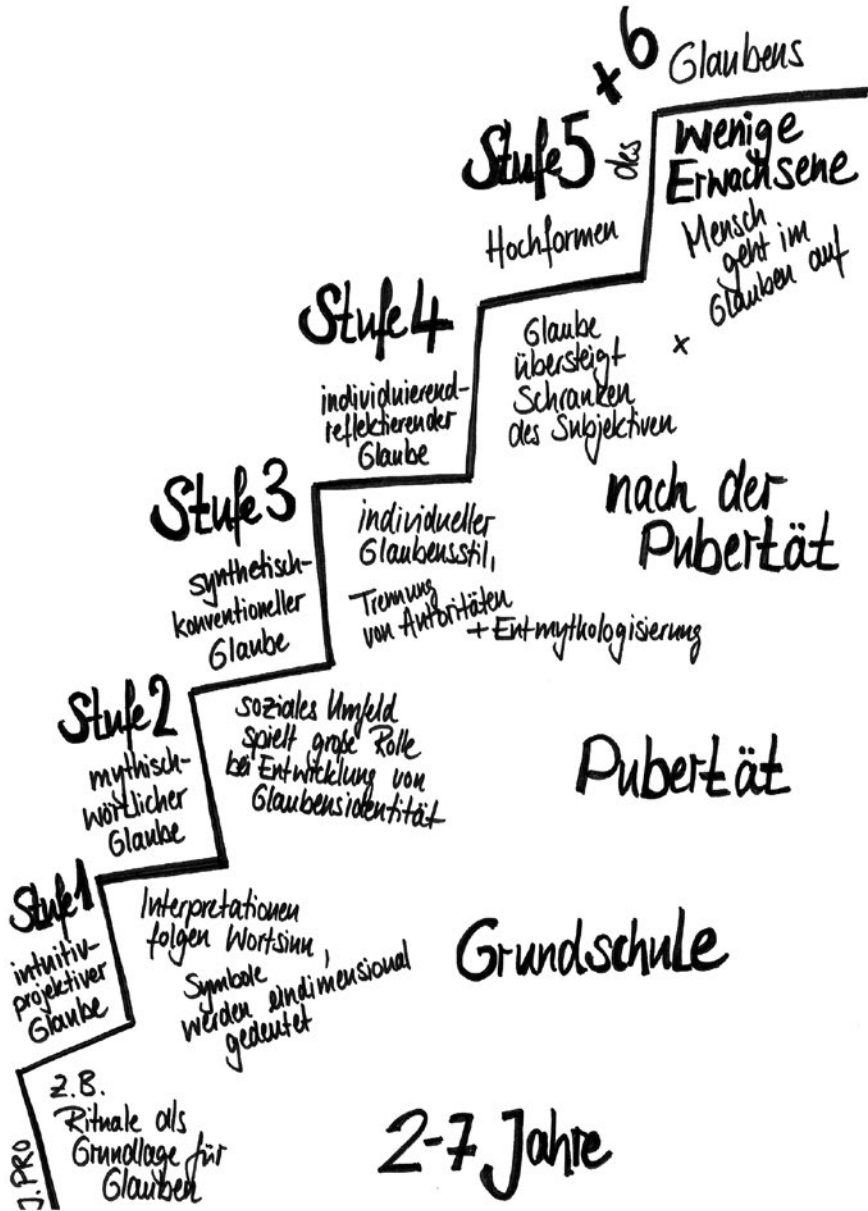 Stufe 5 + 6
Hochformen des Glaubens
wenige
Erwachsene
Mensch
geht im
Glauben auf
Stufe 4
individuierend-
reflektierender
Glaube
Glaube
übersteigt
Schranken
des Subjektiven
x
nach der
Pubertät
Stufe 3
synthetisch-
konventioneller
Glaube
individueller
Glaubensstil,
Trennung
von Autoritäten
+ Entmythologisierung
Stufe 2
mythisch-
wörtlicher
Glaube
soziales Umfeld
spielt große Rolle
bei Entwicklung von
Glaubensidentität
Pubertät
Stufe 1
intuitiv-
projektiver
Glaube
Interpretationen
folgen Wortsinn,
Symbole
werden eindimensional
gedeutet
Grundschule
z.B.
Rituale als
Grundlage für
Glauben
2-7 Jahre
J.PRO